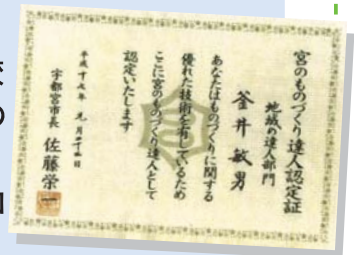 宮のものづくり達人認定証
地域の達人部門
釜井敏男
あなたはものづくりに関する
優れた技術を有しているため
ここに宮のものづくり達人として
認定いたします
平成十七年
宇都宮市長 佐藤栄一
の